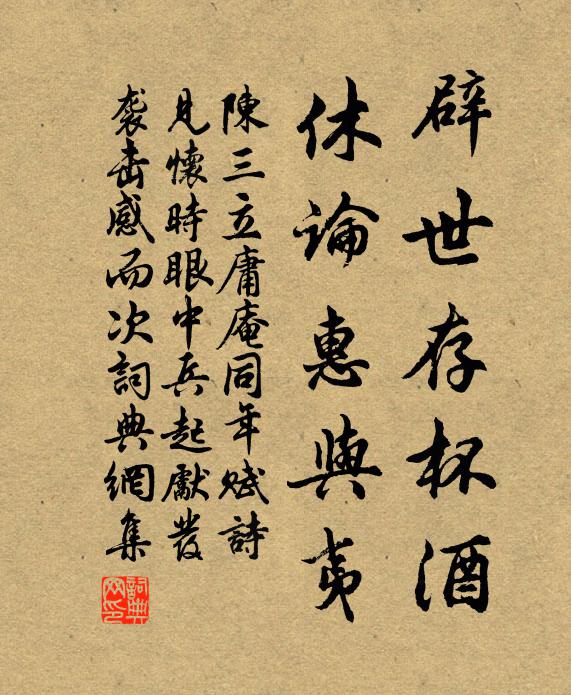 辟世存杯酒
休論惠與夷
陳三立庸庵同年賦詩
見懷時眼中兵起獻發
襲擊感而次詞典網集
詞典网印